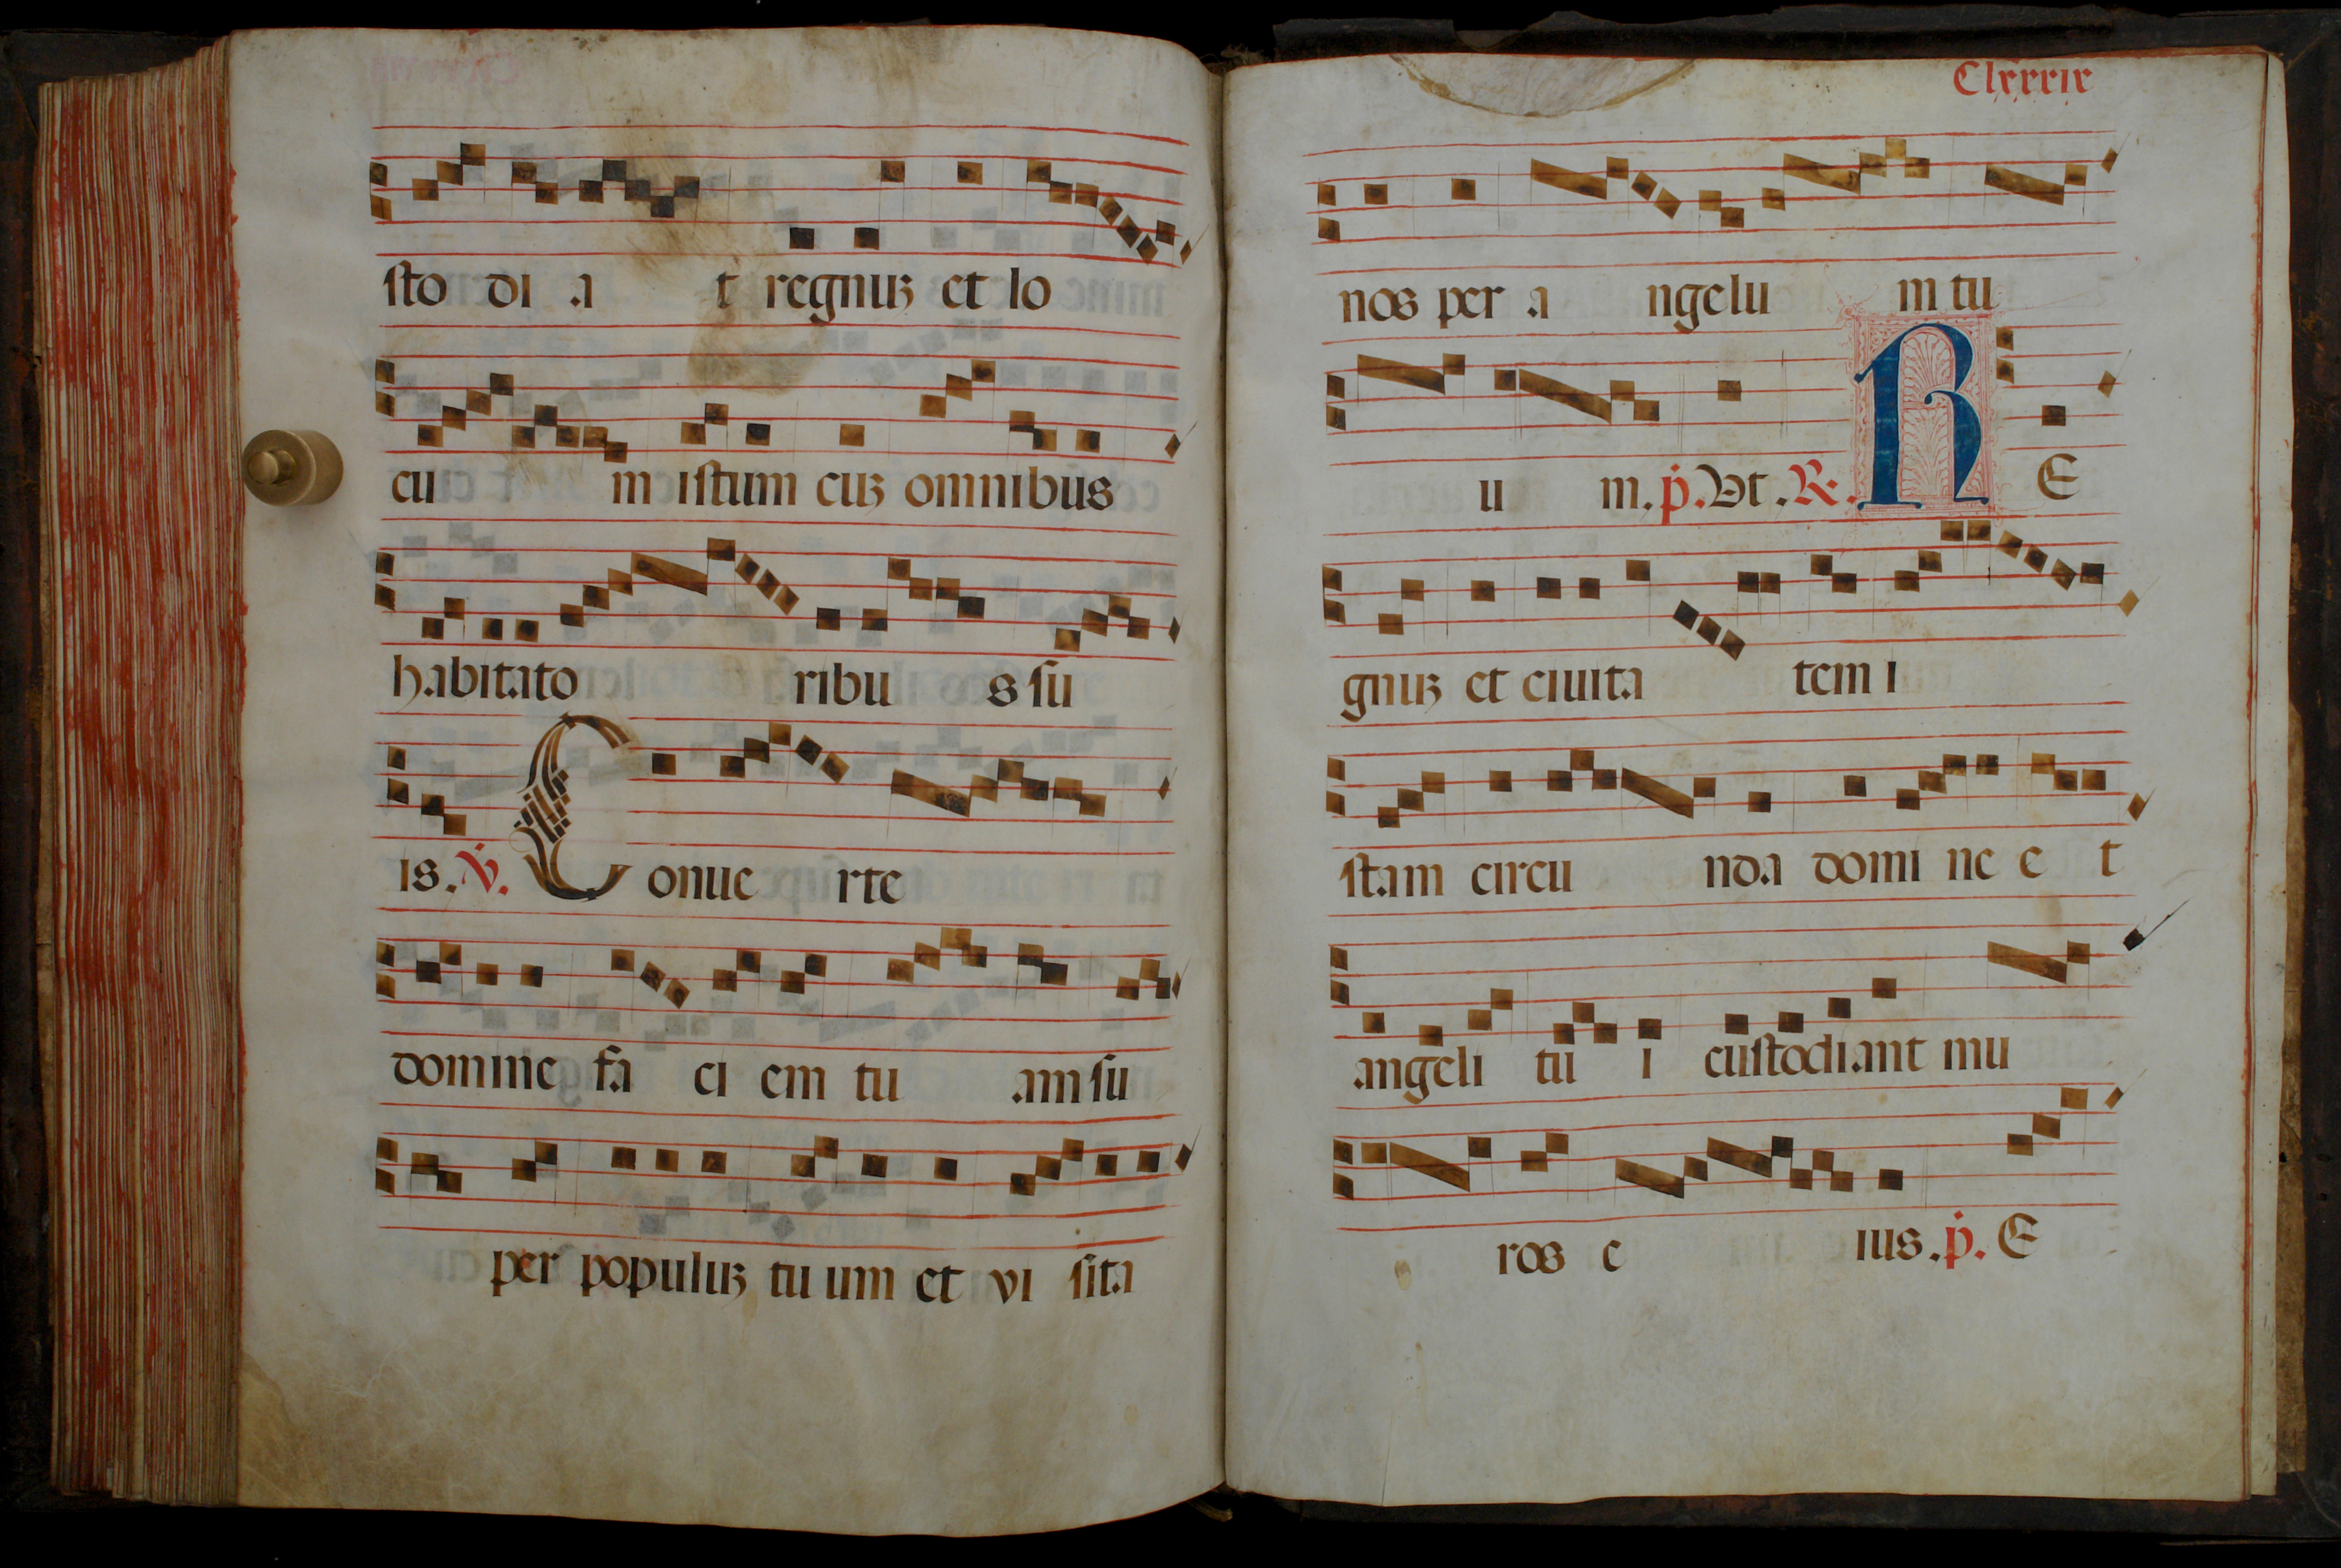 sto di a t regnuꝫ et lo
cu m istum cuꝫ omnibus
habitato ribu s su
is. ℣. Conue rte
domine fa ci em tu am su
per populuꝫ tu um et vi sita
Clxxxix
nos per a ngelu m tu
u m. ṗ. Vt. ℟. RE
gnuꝫ et ciuita tem i
stam circu nda domi ne e t
angeli tu i custodiant mu
ros e ius. ṗ. E